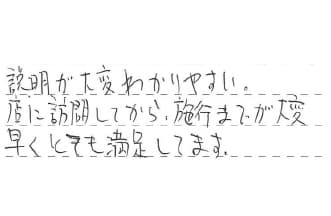 説明が大変わかりやすい。
店に訪問してから、施行までが大変
早くとても満足してます。